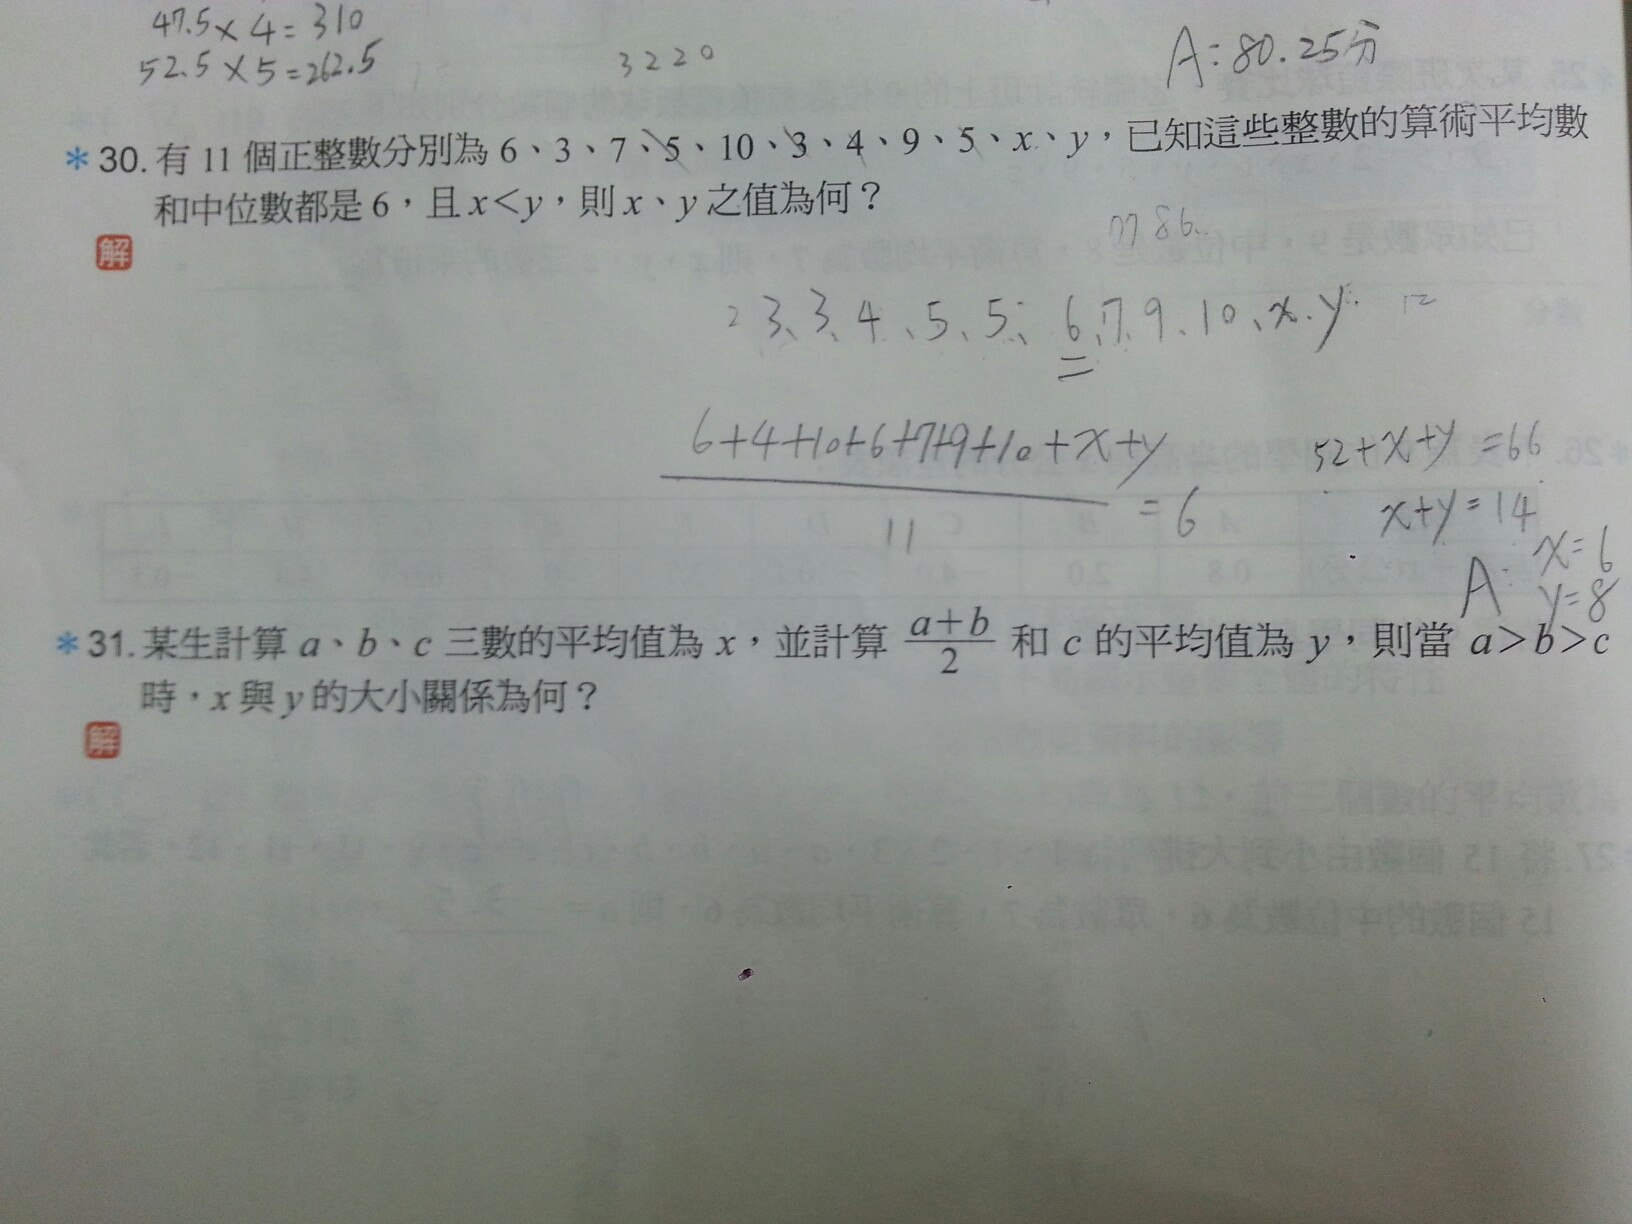 47.5×4=310
52.5×5=262.5
3220
A:80.25分
*30.有 11 個正整數分別為 6、3、7、5、10、3、4、9、5、x、y,已知這些整數的算術平均數
和中位數都是 6,且 x<y,則 x、y 之值為何?
解
3、3、4、5、5、6、7、9、10、x、y
6+4+10+6+7+9+10+x+y
11
=6
52+x+y=66
x+y=14
A: x=6
y=8
*31.某生計算 a、b、c 三數的平均值為 x,並計算 a+b/2 和 c 的平均值為 y,則當 a>b>c
時,x 與 y 的大小關係為何?
解